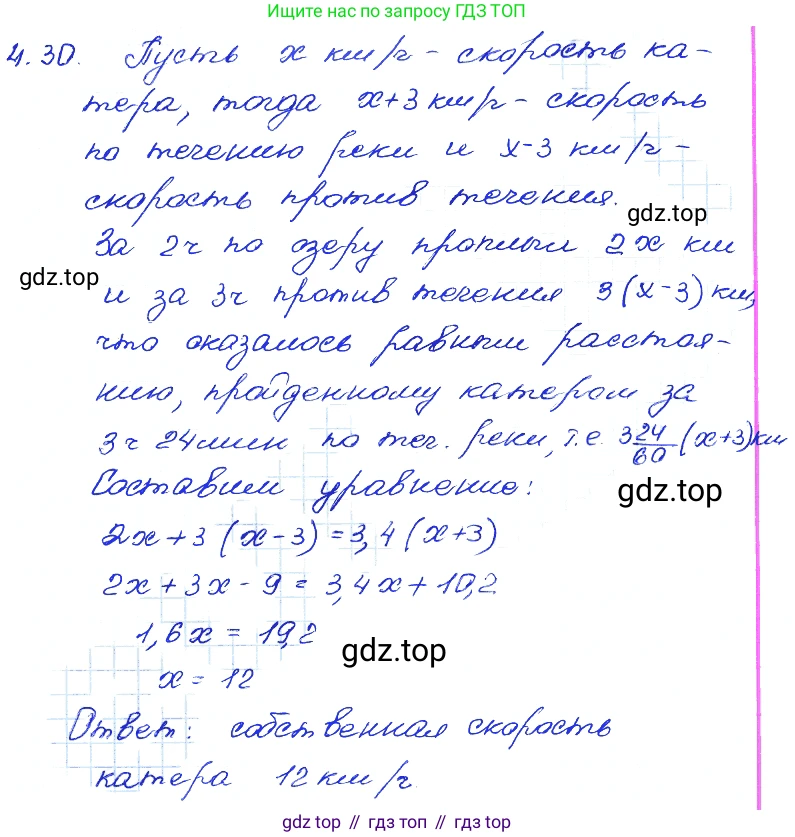 Ищите нас по запросу ГДЗ ТОП
4.30. Пусть x км/ч - скорость ка-
тера, тогда x+3 км/ч - скорость
по течению реки и x-3 км/ч -
скорость против течения.
gdz.top
За 2ч по озеру проплыл 2x км
gdz.top
и за 3ч против течения 3(x-3) км,
что оказалось равным расстоя-
нию, пройденному катером за
3ч 24мин по теч. реки, т.е. 3 24/60 (x+3) км
Составим уравнение:
gdz.top
2x+3(x-3)=3,4(x+3)
2x+3x-9=3,4x+10,2
1,6x=19,2
gdz.top
x=12
Ответ: собственная скорость
катера 12 км/ч.
gdz.top // гдз топ // gdz.top